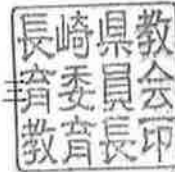 長崎県教
育委員会
教育長印